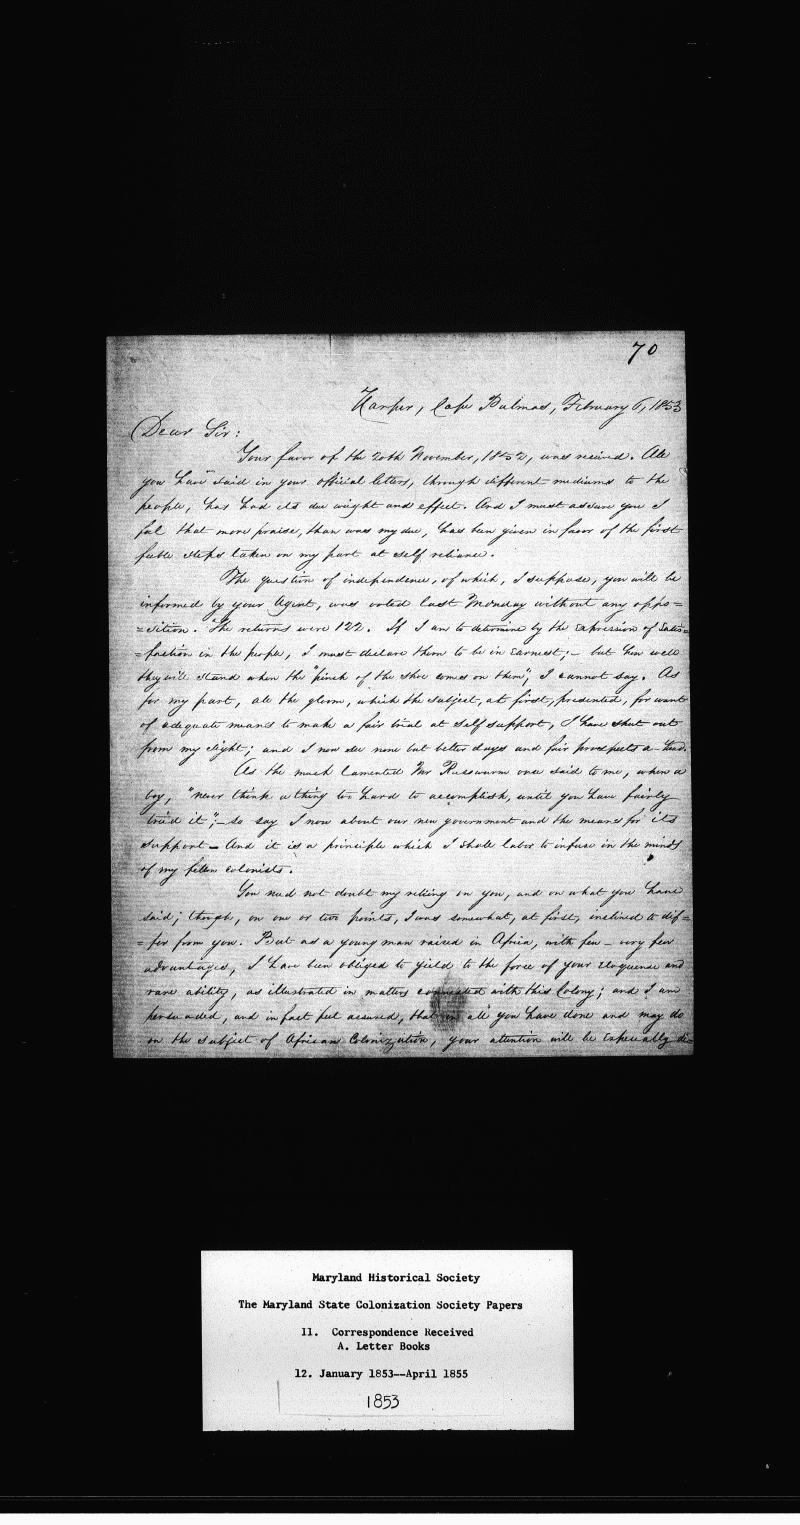 70
Harper, Cape Palmas, February 6, 1853
Dear Sir:
Your favor of the 20th November, 1852, was received. All
you have said in your official letters, through different mediums to the
people, has had its due weight and effect. And I must assure you I
feel that more praise, than was my due, has been given in favor of the first
feeble steps taken on my part at self reliance.
The question of independence, of which, I suppose, you will be
informed by your Agent, was voted last Monday without any oppo=
=sition. The returns were 122. If I am to determine by the expression of satis=
=faction in the people, I must declare them to be in earnest;- but how well
they will stand when the "pinch of the shoe comes on them", I cannot say. As
for my part, all the gloom, which the subject, at first, presented, for want
of adequate means to make a fair trial at self support, I have shut out
from my sight; and I now see none but better days and fair prospects a-head.
As the much lamented Mr Russwurm once said to me, when a
boy, "never think a thing too hard to accomplish, until you have fairly
tried it";-so say I now about our new government and the means for its
support- And it is a principle which I shall labor to infuse in the minds
of my fellow colonists.
You need not doubt my relying on you, and on what you have
said; though, on one or two points, I was somewhat, at first, inclined to dif=
=fer from you. But as a young man raised in Africa, with few - very few
advantages, I have been obliged to yield to the force of your eloquence and
rare ability, as illustrated in matters connected with this Colony; and I am
persuaded, and in fact feel assured, that in all you have done and may do
on the subject of African Colonization, your attention will be especially di=
Maryland Historical Society
The Maryland State Colonization Society Papers
11. Correspondence Received
A. Letter Books
12. January 1853--April 1855
1853